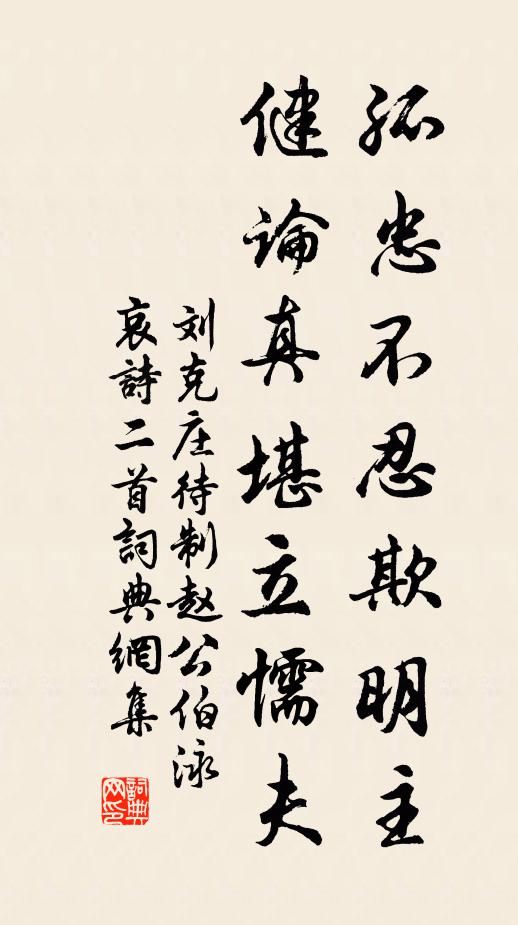 孤忠不忍欺明主
健論真堪立懦夫
刘克庄待制赵公伯泳
哀詩二首詞典網集
詞典网印